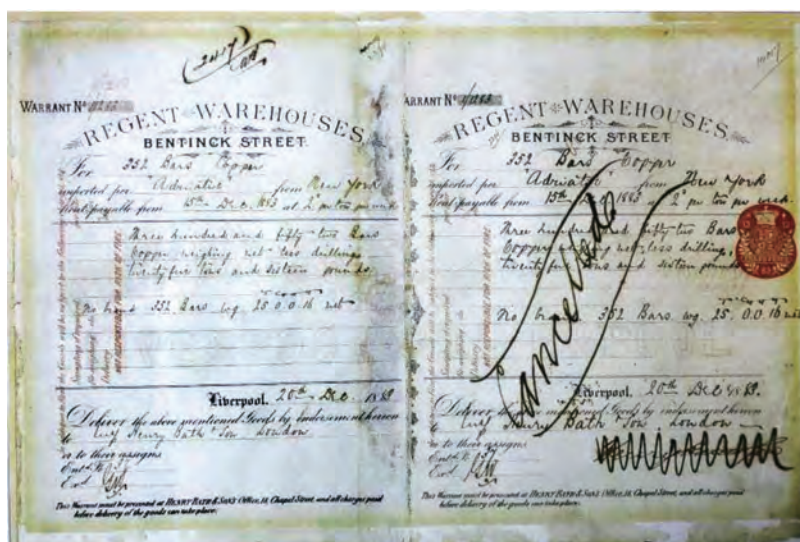 WARRANT No
REGENT WAREHOUSES,
BENTINCK STREET.
For 352 Bars Copper
imported per "Adriatic" from New York
Rent payable from 15th Dec. 1883 at 2d per ton per week
Three hundred and fifty two Bars
Copper weighing net less drillings,
twenty five tons and sixteen pounds.
No brand 352 Bars wg. 25.0.0.16 net
Liverpool, 20th Dec 1883
Deliver the above mentioned Goods by indorsement hereon
to Henry Bath & Son London
or to their assigns
Entd
Exd
This Warrant must be presented at HENRY BATH & SON'S Office, 18, Chapel Street, and all charges paid
before delivery of the goods can take place.
WARRANT No
REGENT WAREHOUSES,
BENTINCK STREET.
For 352 Bars Copper
imported per "Adriatic" from New York
Rent payable from 15th Dec 1883 at 2d per ton per week
Three hundred and fifty two Bars
Copper weighing net less drillings,
twenty five tons and sixteen pounds.
No brand 352 Bars wg. 25.0.0.16 net
Cancelled
Liverpool, 20th Dec 1883.
Deliver the above mentioned Goods by indorsement hereon
to Henry Bath & Son London
or to their assigns
Entd
Exd
This Warrant must be presented at HENRY BATH & SON'S Office, 18, Chapel Street, and all charges paid
before delivery of the goods can take place.